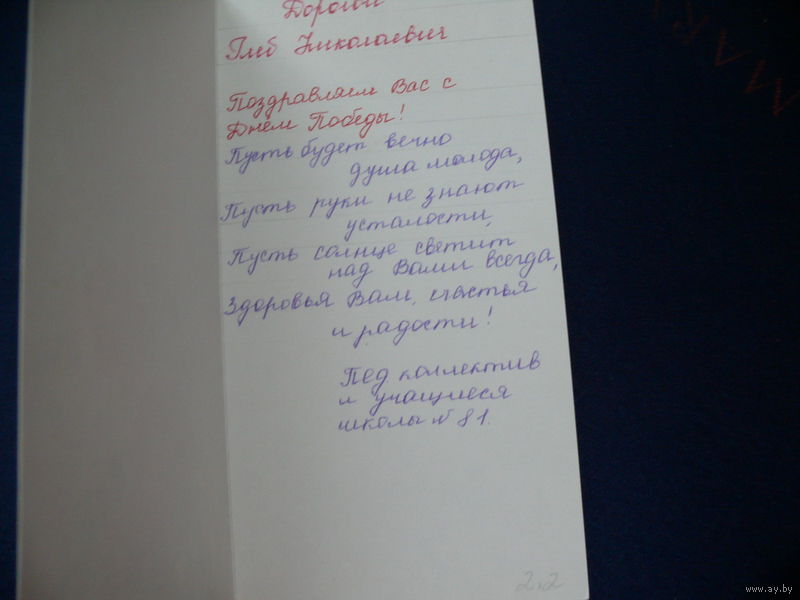 Дорогой
Глеб Николаевич
Поздравляем Вас с
Днём Победы!
Пусть будет вечно
душа молода,
Пусть руки не знают
усталости,
Пусть солнце светит
над Вами всегда,
Здоровья Вам, счастья
и радости!
Пед коллектив
и учащиеся
школы № 81.
2,2
www.ay.by